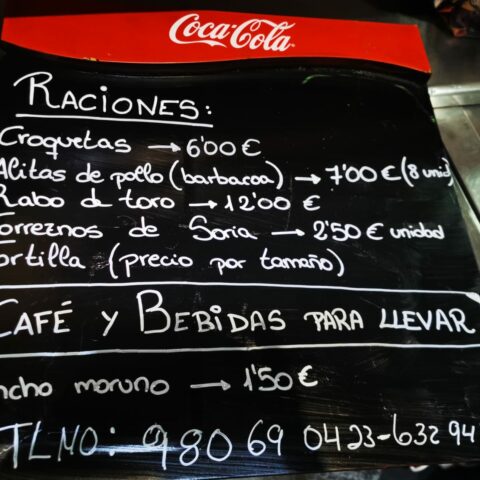 Coca-Cola
RACIONES:
Croquetas → 6'00 €
Alitas de pollo (barbacoa) → 7'00 € (8 unid)
Rabo d toro → 12'00 €
Torreznos de Soria → 2'50 € unidad
ortilla (precio por tamaño)
CAFÉ Y BEBIDAS PARA LLEVAR
ncho moruno → 1'50 €
TLNO: 980 69 04 23-632 94